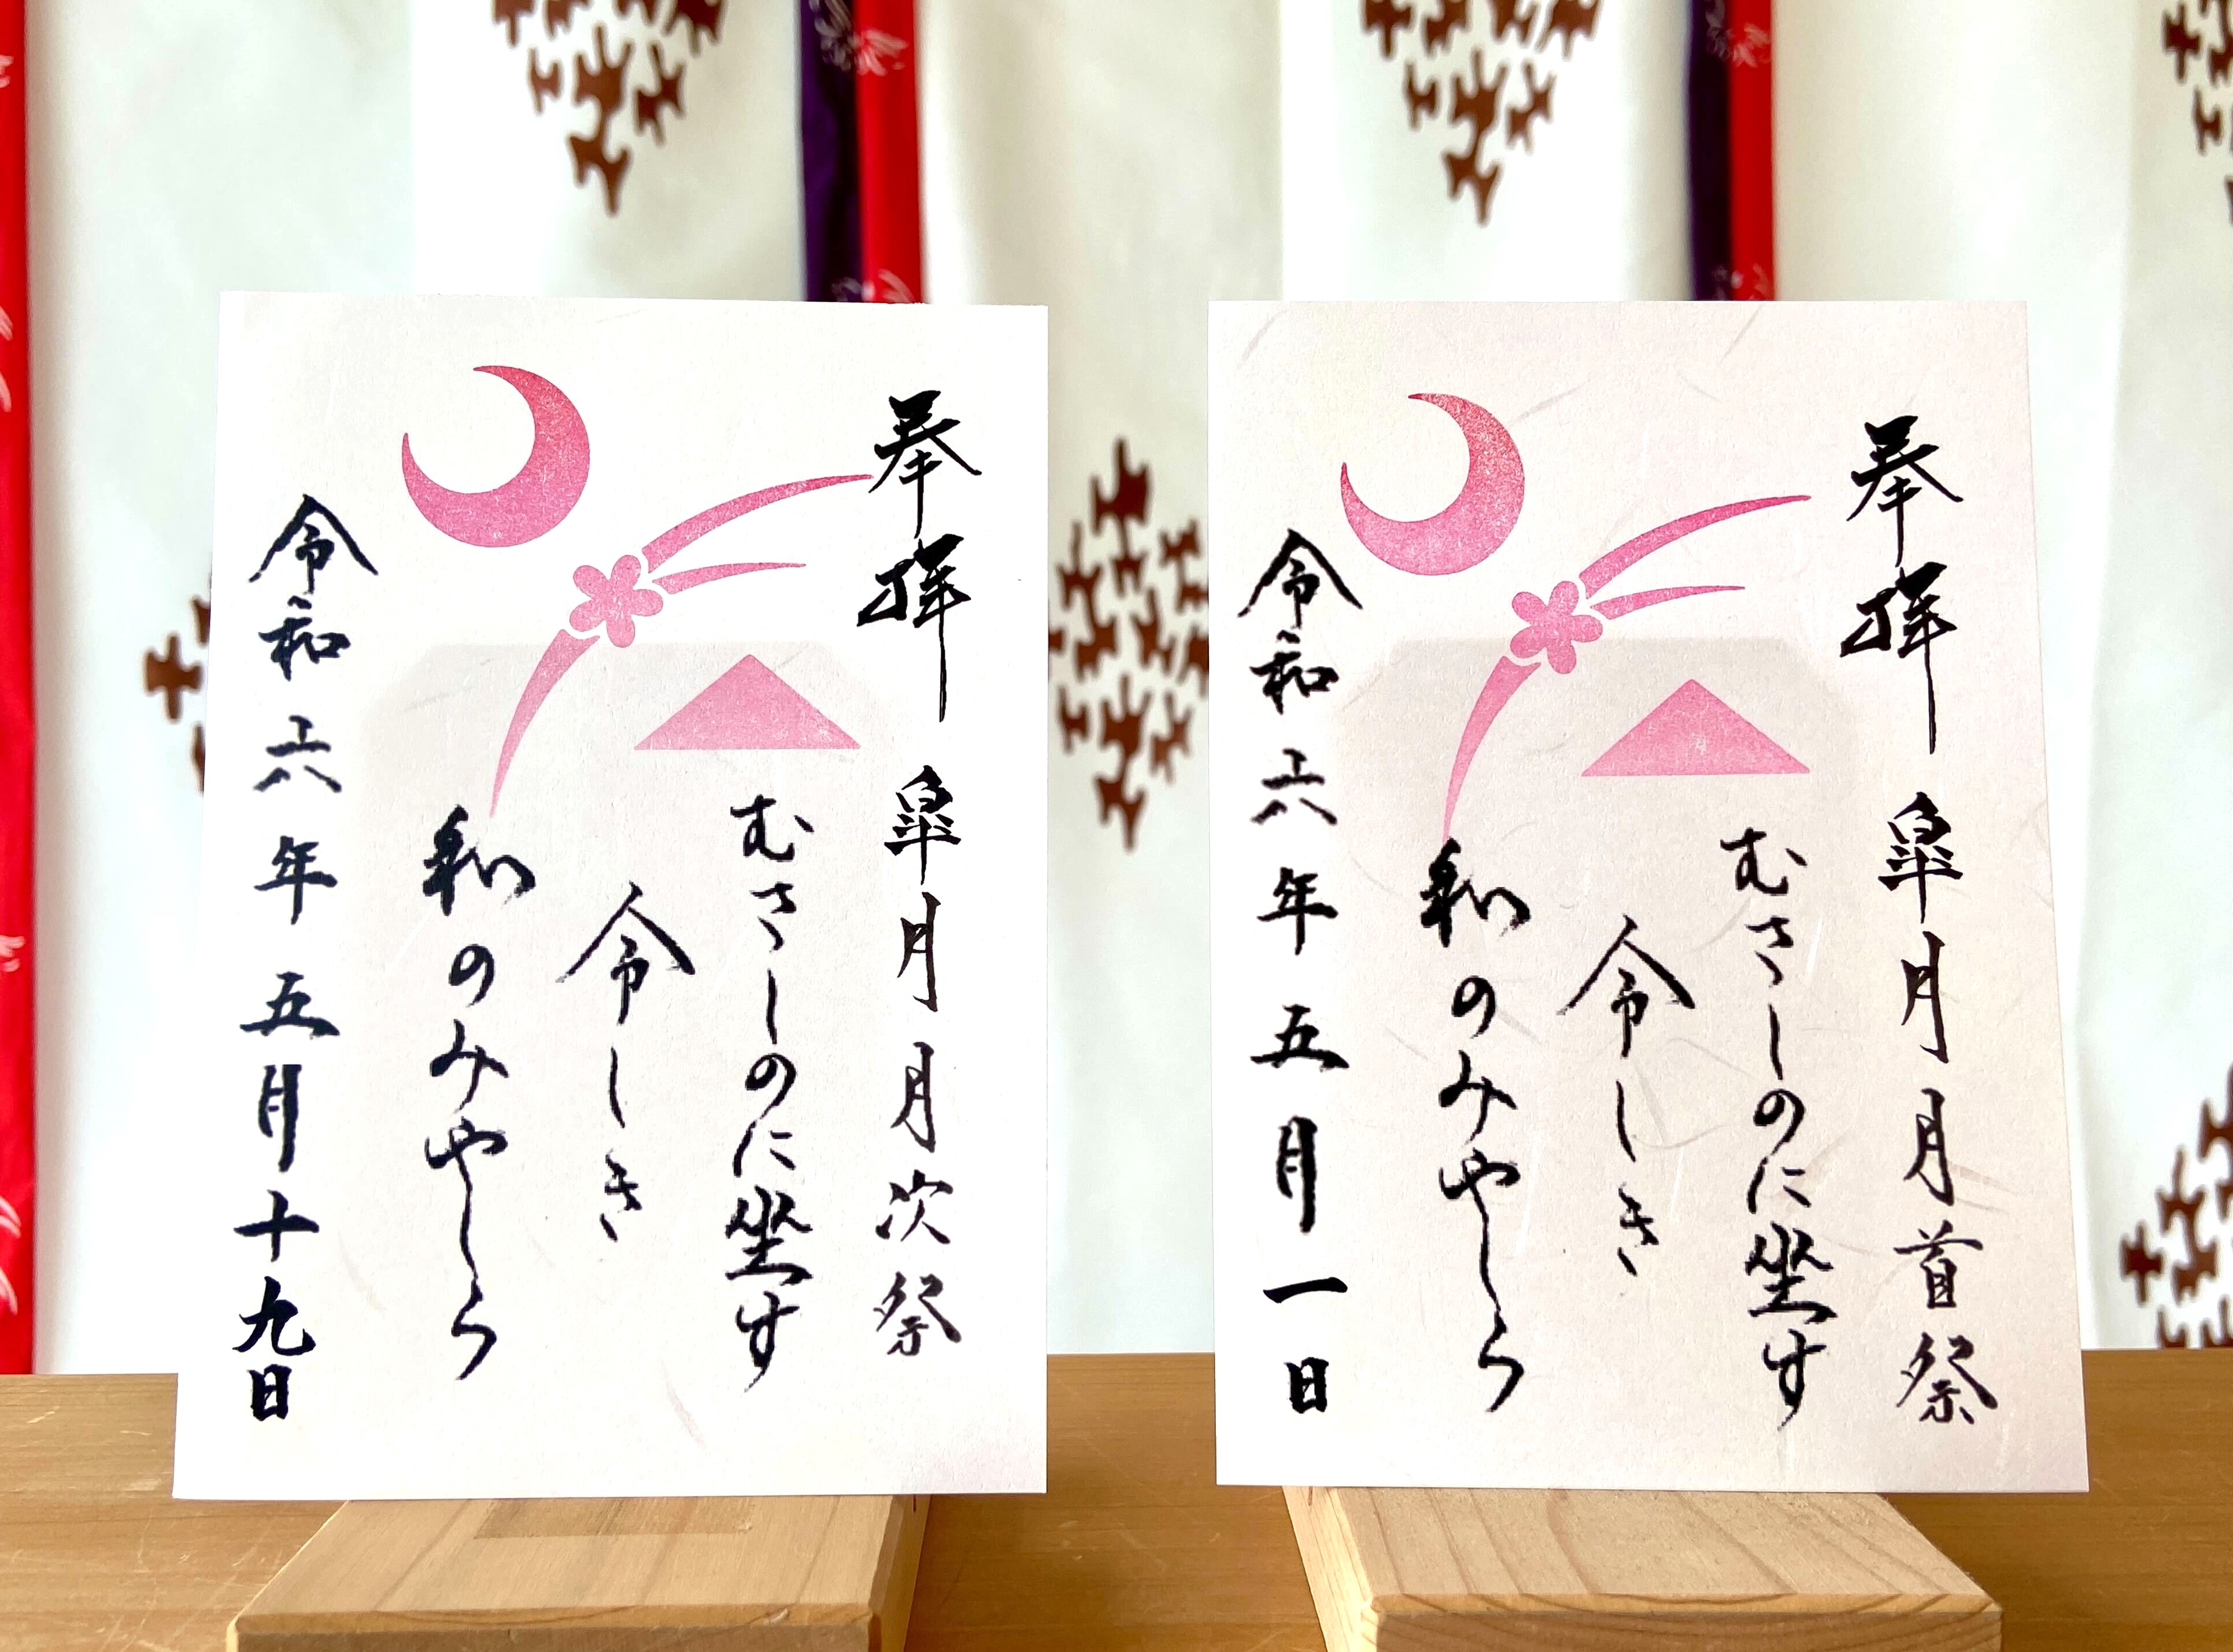 奉拝 皐月月次祭
むさしのに坐す
令しき
和のみやしろ
令和六年五月十九日
奉拝 皐月月首祭
むさしのに坐す
令しき
和のみやしろ
令和六年五月一日